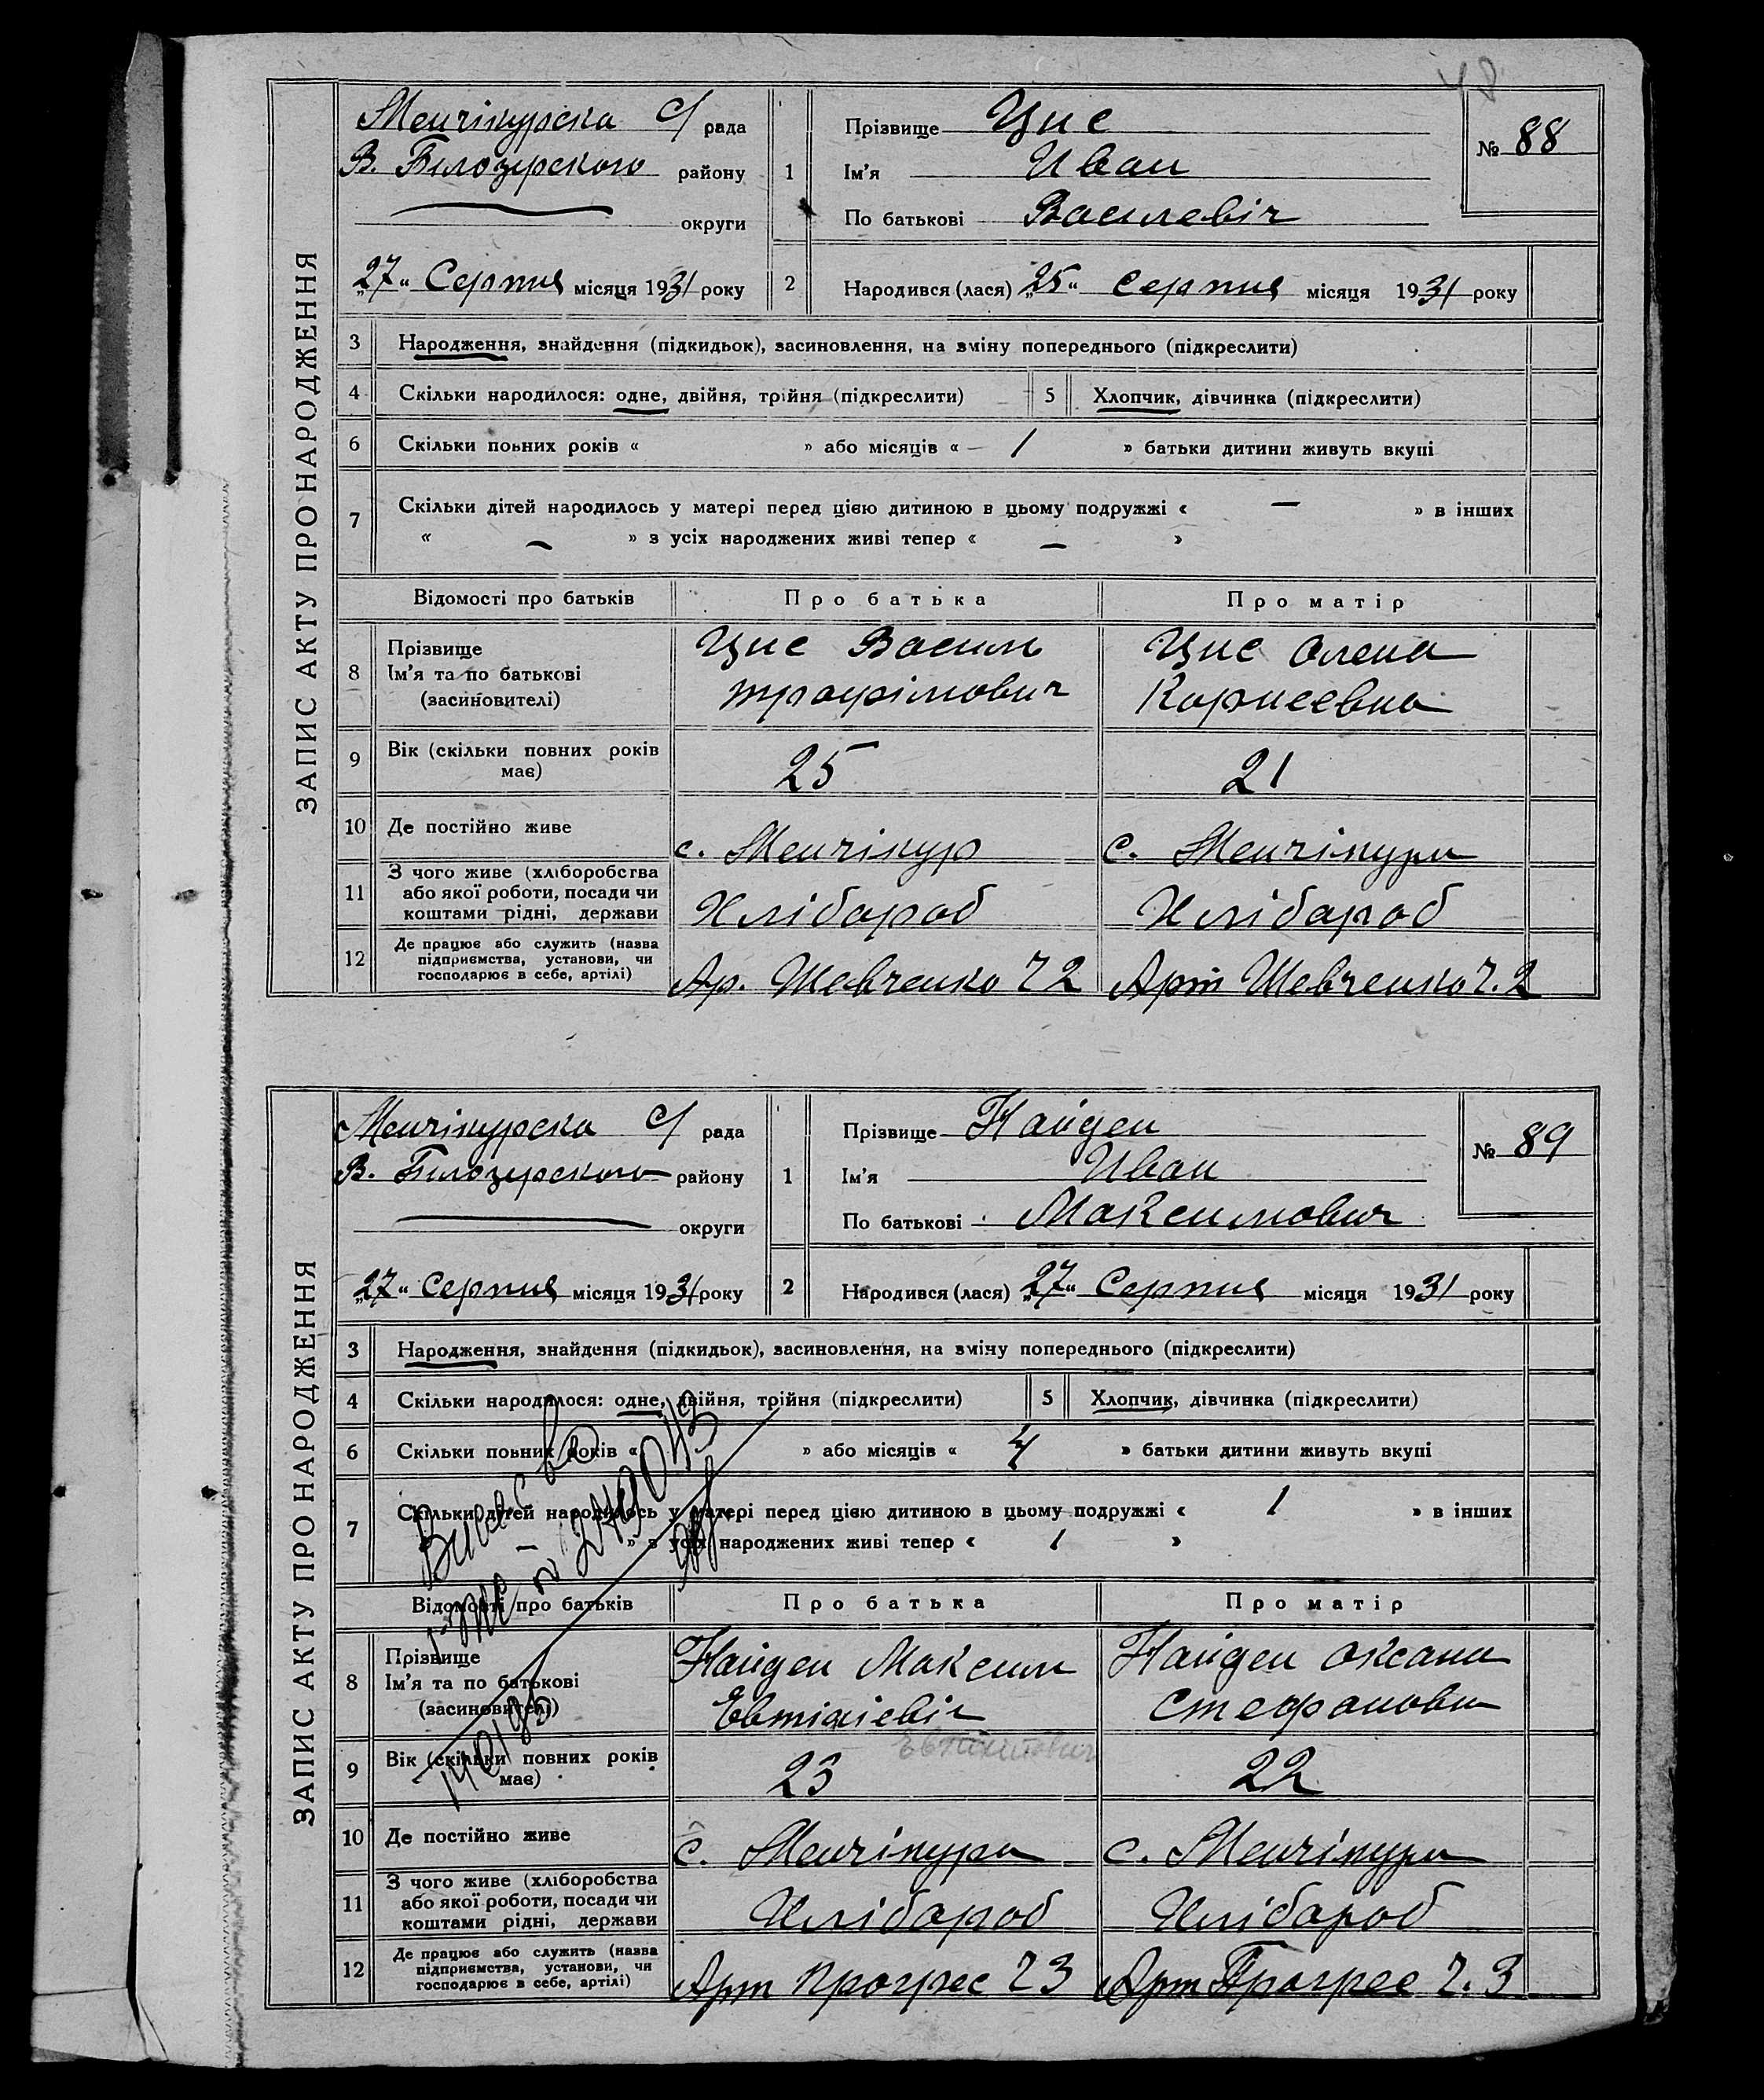 48
ЗАПИС АКТУ ПРО НАРОДЖЕННЯ
Менчікурска С/ рада
В. Білозерского району
округи
„27“ Серпня місяця 1931 року
1
Прізвище Цис
Ім'я Иван
По батькові Василевіч
№ 88
2 Народився (лася) „25“ Серпня місяця 1931 року
3 Народження, знайдення (підкидьок), засиновлення, на зміну попереднього (підкреслити)
4 Скільки народилося: одне, двійня, трійня (підкреслити) 5 Хлопчик, дівчинка (підкреслити)
6 Скільки повних років « » або місяців « — 1 » батьки дитини живуть вкупі
7 Скільки дітей народилось у матері перед цією дитиною в цьому подружжі « — » в інших
« — » з усіх народжених живі тепер « — »
Відомості про батьків Про батька Про матір
8 Прізвище Ім'я та по батькові (засиновителі)
Цис Василь
Трофімович
Цис Олена
Корнеевна
9 Вік (скільки повних років має) 25 21
10 Де постійно живе с. Менчікур с. Менчікури
11 З чого живе (хліборобства або якої роботи, посади чи коштами рідні, держави Хлібароб Хлібароб
12 Де працює або служить (назва підприємства, установи, чи господарює в себе, артілі) Ар. Шевченко Ч 2 Арт Шевченко Ч. 2
ЗАПИС АКТУ ПРО НАРОДЖЕННЯ
Менчікурска С/ рада
В. Білозерского району
округи
„27“ Серпня місяця 1931 року
1
Прізвище Найден
Ім'я Иван
По батькові Максимович
№ 89
2 Народився (лася) „27“ Серпня місяця 1931 року
3 Народження, знайдення (підкидьок), засиновлення, на зміну попереднього (підкреслити)
4 Скільки народилося: одне, двійня, трійня (підкреслити) 5 Хлопчик, дівчинка (підкреслити)
6 Скільки повних років « » або місяців « 4 » батьки дитини живуть вкупі
7 Скільки дітей народилось у матері перед цією дитиною в цьому подружжі « 1 » в інших
« — » з усіх народжених живі тепер « 1 »
Відомості про батьків Про батька Про матір
8 Прізвище Ім'я та по батькові (засиновителі)
Найден Максим
Евтіхіевіч
Найден Оксана
Стефановн
9 Вік (скільки повних років має) 23 22
10 Де постійно живе с. Менчікури с. Менчікури
11 З чого живе (хліборобства або якої роботи, посади чи коштами рідні, держави Хлібароб Хлібароб
12 Де працює або служить (назва підприємства, установи, чи господарює в себе, артілі) Арт Прогрес Ч 3 Арт Прогрес Ч. 3